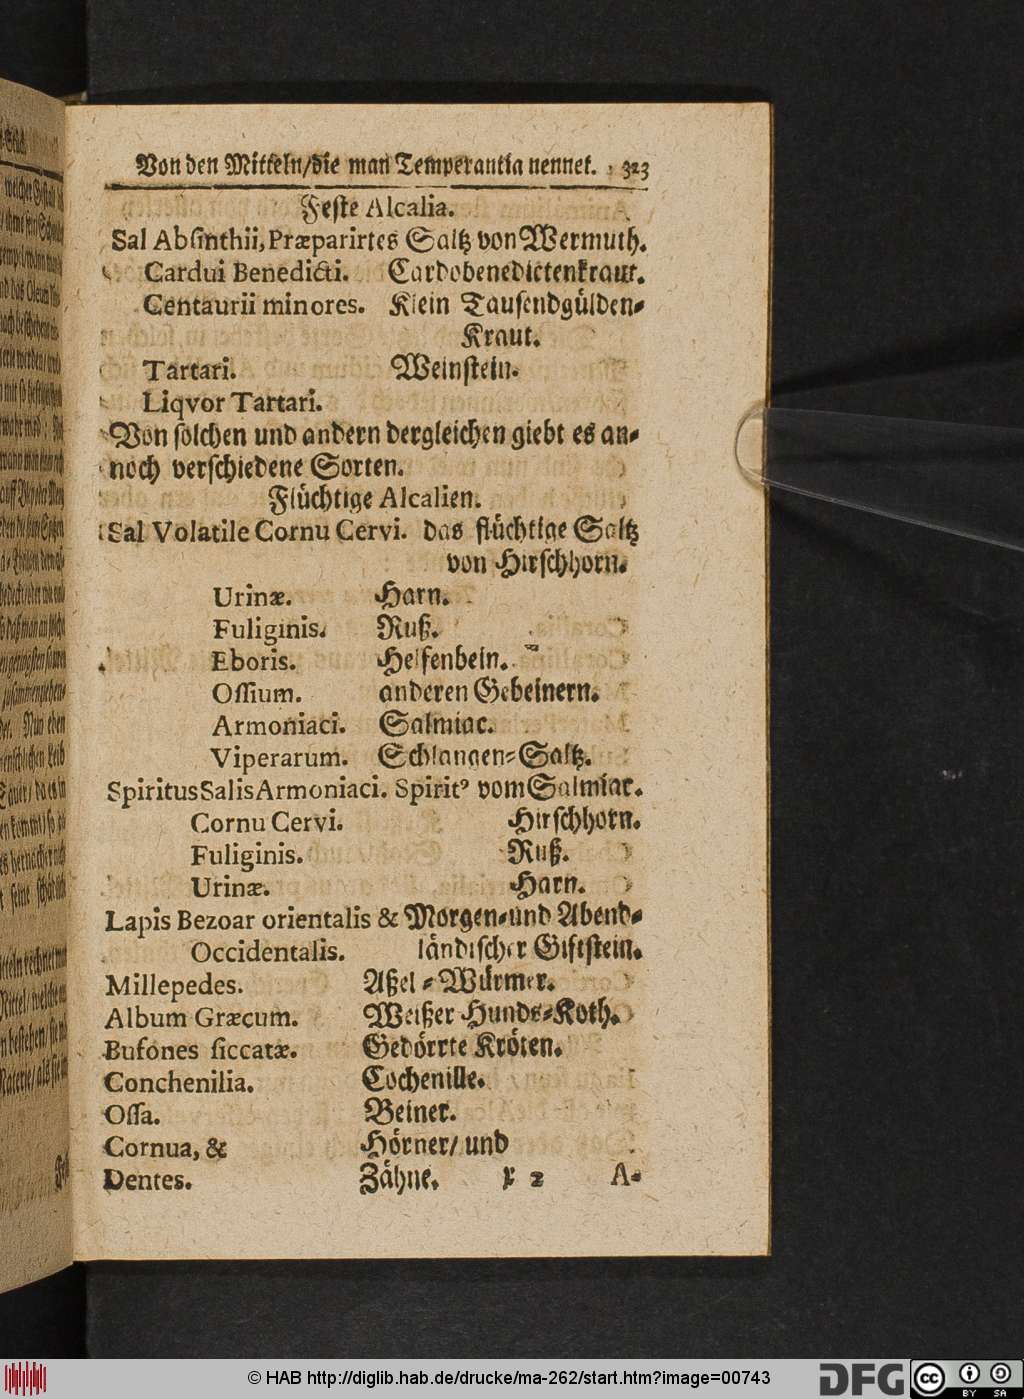 Von den Mitteln/die man Temperantia nennet. 323
Feste Alcalia.
Sal Absinthii, Præparirtes Saltz von Wermuth.
Cardui Benedicti. Cardobenedictenkraut.
Centaurii minores. Klein Tausendgülden-
Kraut.
Tartari. Weinstein.
Liqvor Tartari.
Von solchen und andern dergleichen giebt es an-
noch verschiedene Sorten.
Flüchtige Alcalien.
Sal Volatile Cornu Cervi. das flüchtige Saltz
von Hirschhorn.
Urinæ. Harn.
Fuliginis. Ruß.
Eboris. Helfenbein.
Ossium. anderen Gebeinern.
Armoniaci. Salmiac.
Viperarum. Schlangen-Saltz.
Spiritus Salis Armoniaci. Spirit⁹ vom Salmiac.
Cornu Cervi. Hirschhorn.
Fuliginis. Ruß.
Urinæ. Harn.
Lapis Bezoar orientalis & Morgen-und Abend-
Occidentalis. ländischer Giftstein.
Millepedes. Aßel-Würmer.
Album Græcum. Weißer Hunds-Koth.
Bufones siccatæ. Gedörrte Kröten.
Conchenilia. Cochenille.
Ossa. Beiner.
Cornua, & Hörner/ und
Dentes. Zähne. X 2 A-
© HAB http://diglib.hab.de/drucke/ma-262/start.htm?image=00743
DFG
cc BY SA